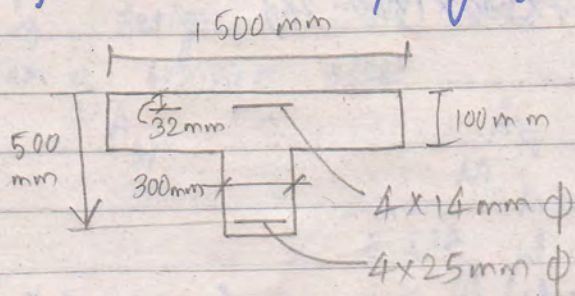 1500 mm
32mm
100mm
500
mm
300mm
4x14mm ϕ
4x25mm ϕ